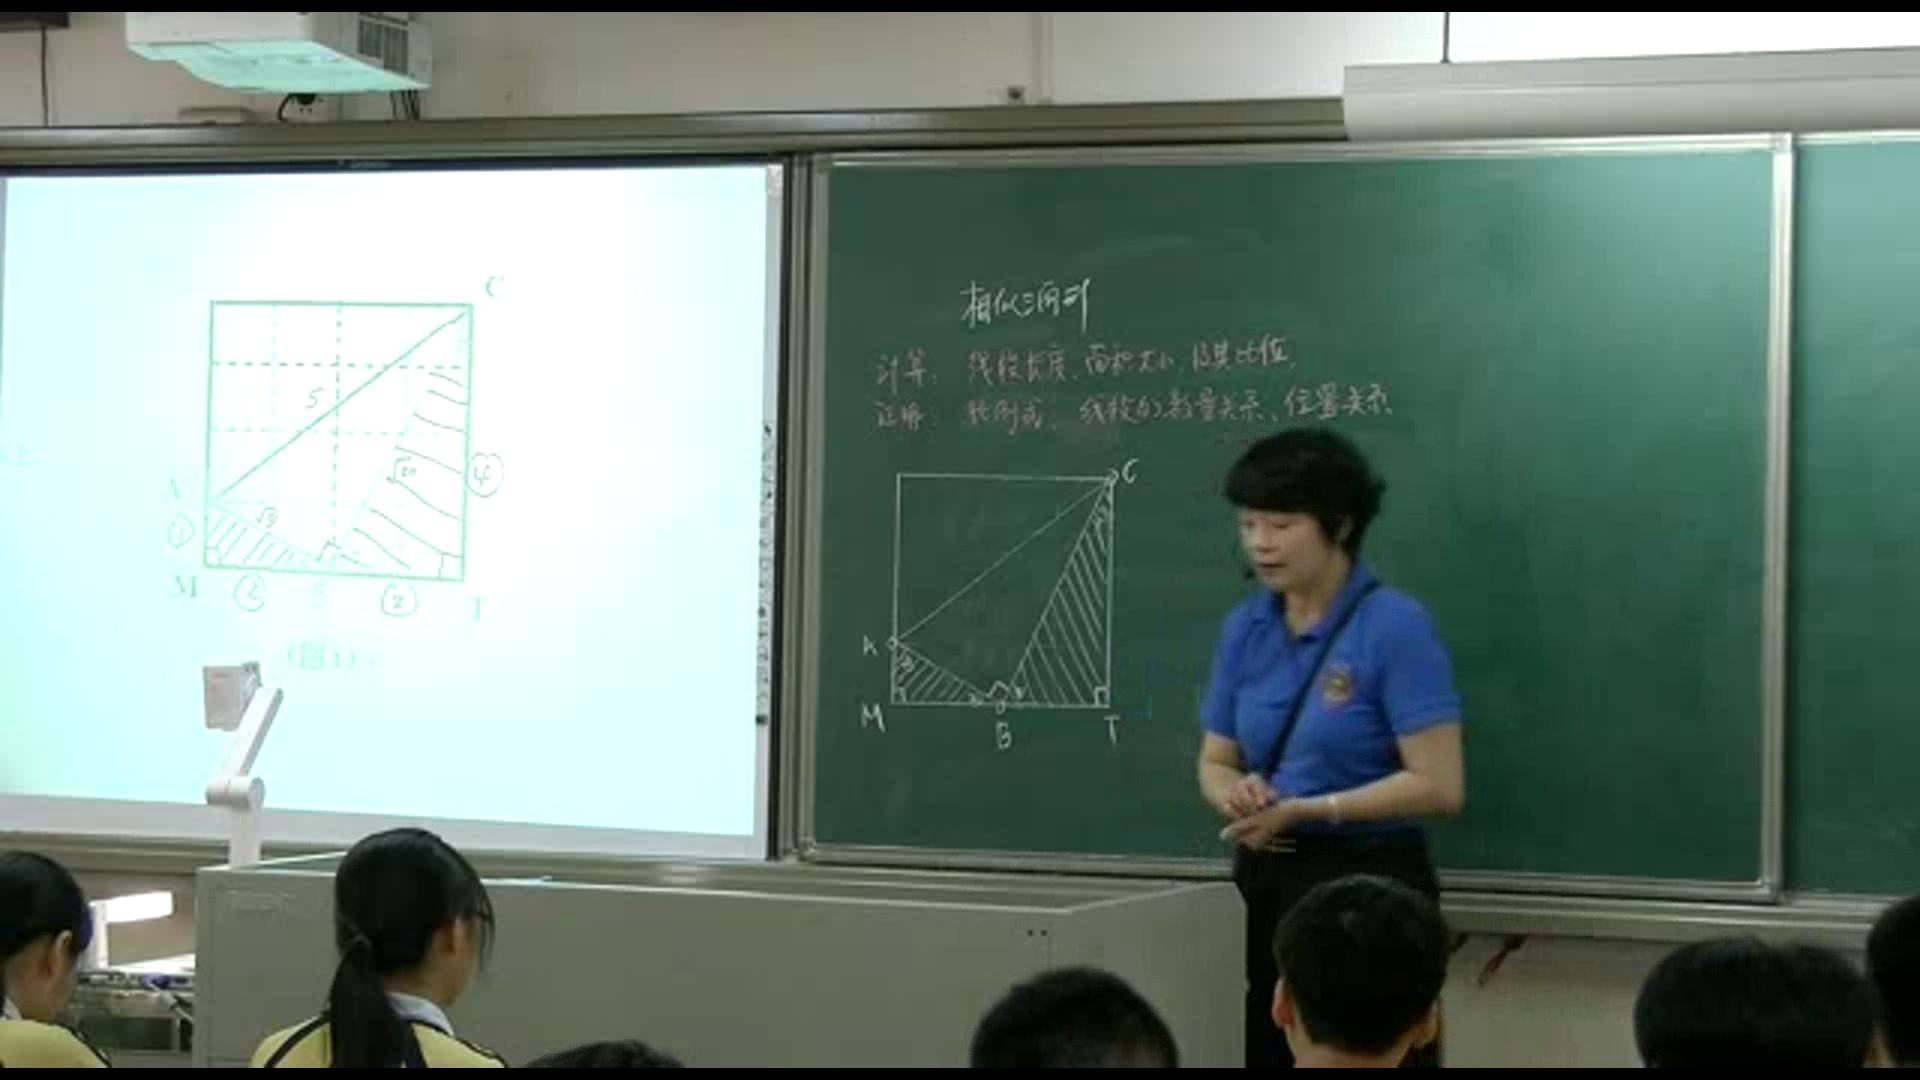 C
5
√20
④
A
①
√5
M
②
B
②
T
(图1)
相似三角形
计算: 线段长度、面积大小、及其比值.
证明: 比例式、线段的数量关系、位置关系
C
A
M
B
T